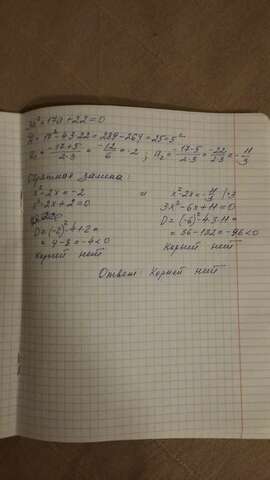 3a²+17a+22=0
D=17²-4·3·22=289-264=25=5²
a₁=(-17+5)/(2·3)=-12/6=-2; a₂=(-17-5)/(2·3)=-22/(2·3)=-11/3
Обратная замена:
x²-2x=-2 и x²-2x=-11/3 |·3
x²-2x+2=0 3x²-6x+11=0
D=(-2)²-4·1·2= D=(-6)²-4·3·11=
=4-8=-4<0 =36-132=-96<0
Корней нет Корней нет
Ответ: Корней нет